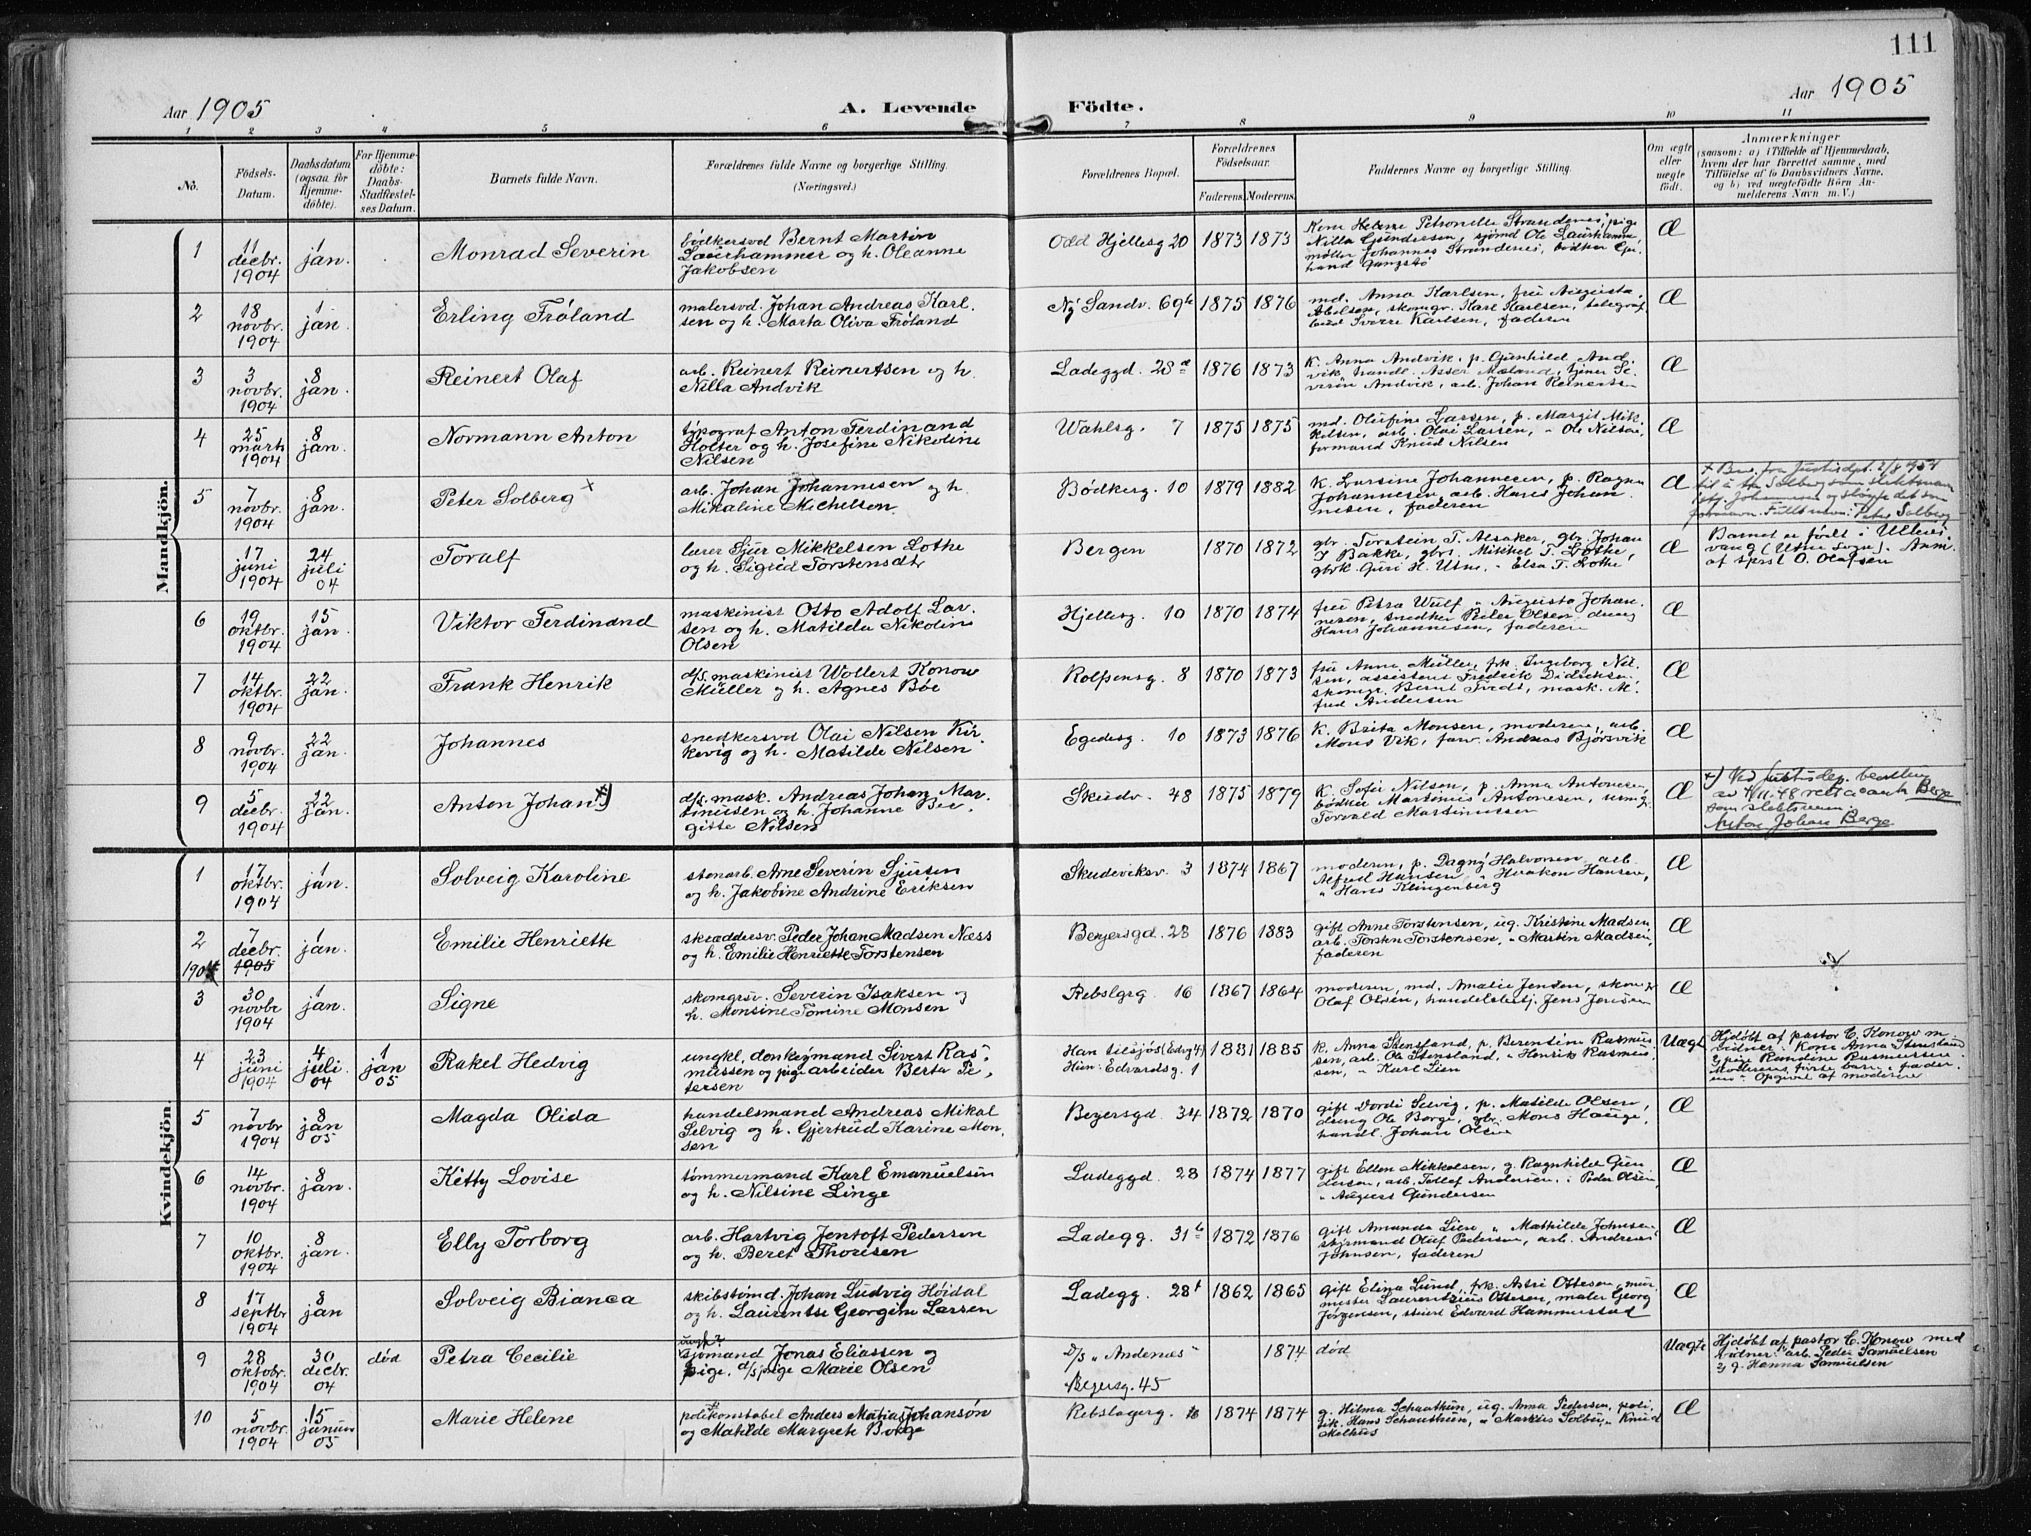 111
Aar 1905
A. Levende
Födte.
Aar 1905
1 2 3 4 5 6 7 8 9 10 11
No.
Födsels-
Datum.
Daabsdatum
(ogsaa for
Hjemme-
döbte).
For Hjemme-
döbte:
Daabs-
Stadfæstel-
ses Datum.
Barnets fulde Navn.
Forældrenes fulde Navne og borgerlige Stilling.
(Næringsvei.)
Forældrenes Bopæl.
Forældrenes
Födselsaar.
Faderens. Moderens.
Faddernes Navne og borgerlige Stilling.
Om ægte
eller
uægte
födt.
Anmærkninger
(saasom: a) i Tilfælde af Hjemmedaab,
hvem der har forrettet samme, med
Tilföielse af to Daabsvidners Navne,
og b) ved uægtefödte Börn An-
melderens Navn m. V.)
Mandkjön.
1
11
decbr.
1904
1
jan.
Monrad Severin
bödkersvd Bernt Martin
Lauerhammer og h. Oleanne
Jakobsen
Odd Hjellesg 20
1873 1873
Æ
2
18
novbr.
1904
1
jan.
Erling Fröland
malersvd. Johan Andreas Karl-
sen og h. Marta Oliva Fröland
Ny Sandv. 69b
1875 1876
md. Anna Karlsen, frü Augusta
Abelsen, skomgr. Karl Karlsen, telegraf
bud Sverre Karlsen, faderen
Æ
3
3
novbr.
1904
8
jan.
Reinert Olaf
arb. Reinert Reinertsen og h.
Nilla Andvik
Ladeggd. 28
1876 1873
k. Anna Andvik, p. Gunhild And-
vik, handl. Asser Mæland, tjener Se-
verin Andvik, arb. Johan Reinerts-
Æ
4
25
marts
1904
8
jan.
Normann Anton
typograf Anton Ferdinand
Holter og h. Josefine Nikoline
Nilsen
Wahlsg. 7
1875 1875
md. Olufine Larsen, p. Margit Mik-
kelsen, arb. Olai Larsen, " Ole Nilsen,
formand Knud Nilsen
Æ
5
7
novbr.
1904
8
jan.
Peter Solberg x
arb. Johan Johannesen og h.
Mikaline Michelsen
Bödkerg. 10
1879 1882
k. Lursine Johannesen, p. Ragna
Johannesen, arb. Hans Johan-
nesen, faderen
Æ
fornavn. Fullt navn: Peter Solberg
17
juni
1904
24
juli
04
Toralf
lærer Sjur Mikkelsen Lothe
og h. Sigrid Torstensdtr
Bergen
1870 1872
gbr. Torstein T. Alsaker, gbr. Johan
J Bakke, gbrs. Mikkel T. Lothe,
gbrk Guri H. Utne, " Elsa T. Lothe
Æ
Barnet er födt i Ullens-
vang (Utne Sogn). Anm.
af sprst O. Olafsen
6
19
oktbr.
1904
15
jan.
Viktor Ferdinand
maskinist Otto Adolf Lar-
sen og h. Matilda Nikoline
Olsen
Hjellesg. 10
1870 1874
frü Petra Wulf " Augusta Johan-
nesen, snedker Peder Olsen, dreng
Hans Johannesen, faderen
Æ
7
14
oktbr.
1904
22
jan.
Frank Henrik
d/s. maskinist Wollert Konow
Müller og h. Agnes Böe
Rolfsensg. 8
1870 1873
frü Anna Müller, frk. Ingeborg Nil-
sen, assistent Fredrik Didriksen,
skomgr. Bernt Tvedt, mask. Al-
fred Andersen
Æ
8
9
novbr.
1904
22
jan.
Johannes
snedkersvd Olai Nilsen Kir-
kevig og h. Matilde Nilsen
Egedesg. 10
1873 1876
k. Brita Monsen, moderen, arb.
Mons Vik, farv. Andreas Björsvik
Æ
9
5
decbr.
1904
22
jan.
Anton Johan x)
d/s. mask. Andreas Johan Mar-
tinusen og h. Johanne Bir-
gitte Nilsen
Skudv. 48
1875 1879
k. Sofie Nilsen, p. Anna Antonesen
bödker Martinus Antonesen,
Torvald Martinussen
Æ
som slektsnavn.
Anton Johan Berge
Kvindekjön
1
17
oktbr.
1904
1
jan.
Solveig Karoline
stenarb. Arne Severin Sjursen
og h. Jakobine Andrine Eriksen
Skudeviksv. 3
1874 1867
moderen, p. Dagny Halvorsen, arb.
Alfred Hansen, " Haakon Hansen,
" Hans Klingenberg
Æ
2
1904
7
decbr.
1905
1
jan.
Emilie Henriette
skræddersv. Peder Johan Madsen Næss
og h. Emilie Henriette Torstensen
Beyersgd. 28
1876 1883
gift Anne Torstensen, ug. Kristine Madsen,
arb. Torsten Torstensen, " Martin Madsen,
faderen
Æ
3
30
novbr
1904
1
jan.
Signe
skomgrsv. Severin Isaksen og
h. Monsine Tomine Monsen
Rebslgrg. 16
1867 1864
moderen, md. Amalie Jensen, skomgr
Olaf Olsen, handelsbestj. Jens Jensen
Æ
4
23
juni
1904
4
juli
04
1
jan
05
Rakel Hedvig
ungkl. donkeymand Sivert Ras-
mussen og pige arbeider Berta Pe-
tersen
Han tilsjös (Edvg 4)
Hun: Edvardsg. 1
1881 1885
k. Anna Stensland, p. Berentine Rasmus-
sen, arb. Ole Stensland, " Henrik Rasmus-
sen, " Karl Lien
Uægte
Hjdöbt af pastor C. Konow m.
vidner: Kone Anna Stensland
2) pige Randine Rasmussen.
Moderens förste barn, fader-
ens " Opgivet af moderen
5
7
novbr
1904
8
jan
05
Magda Olida
handelsmand Andreas Mikal
Selvig og h. Gjertrud Karine Mon-
sen
Beyersgd. 34
1872 1870
gift Dordi Selvig, p. Matilde Olsen,
dreng Ole Borge, gbr. Mons Hauge,
handl. Johan Olsen
Æ
6
14
novbr.
1904
8
jan.
Kitty Lovise
tömmermand Karl Emanuelsen
og h. Nilsine Linge
Ladeggd. 28
1874 1877
gift Ellen Mikkelsen, g. Ragnhilde Gun-
dersen, arb. Tollef Andersen, " Peder Olsen,
" August Gundersen
Æ
7
10
oktbr.
1904
8
jan.
Elly Torborg
arb. Hartvig Jentoft Pedersen
og h. Beret Thorisen
Ladegg. 31b
1872 1876
gift Amanda Lien, " Mathilde Johnsen
styrmand Oluf Pedersen, arb. Andreas
Johnsen, faderen
Æ
8
17
septbr
1904
8
jan
Solveig Bianca
skibstömd. Johan Ludvig Höidal
og h. Laurentse Georgine Larsen
Ladegg. 28
1862 1865
gift Eliza Lund, frk. Astri Ottesen, mur-
mester Laurentzius Ottesen, maler Georg
Jörgensen, stuert Edvard Hammerstad
Æ
9
28
oktobr.
1904
30
decbr.
04
död
Petra Cecilie
ungk?
sjömand Jonas Eliassen og
pige, d/s pige Marie Olsen
D/s "Andenæs"
Beyersg. 45
1874
död
Uægte
Hjdöbt af pastor C. Konow med
vidner: arb. Peder Samuelsen
2) g. Hanna Samuelsen
10
5
novbr.
1904
15
januar
05
Marie Helene
politkonstabel Anders Matias Johansen
og Matilde Margrete Borge
Rebslagerg. 16
1874 1874
g. Hilma Schauthun, ug. Anna Pedersen, poli-
tik. Hans Schauthun, " Markus Solbu, " Knud
Melhus
Æ